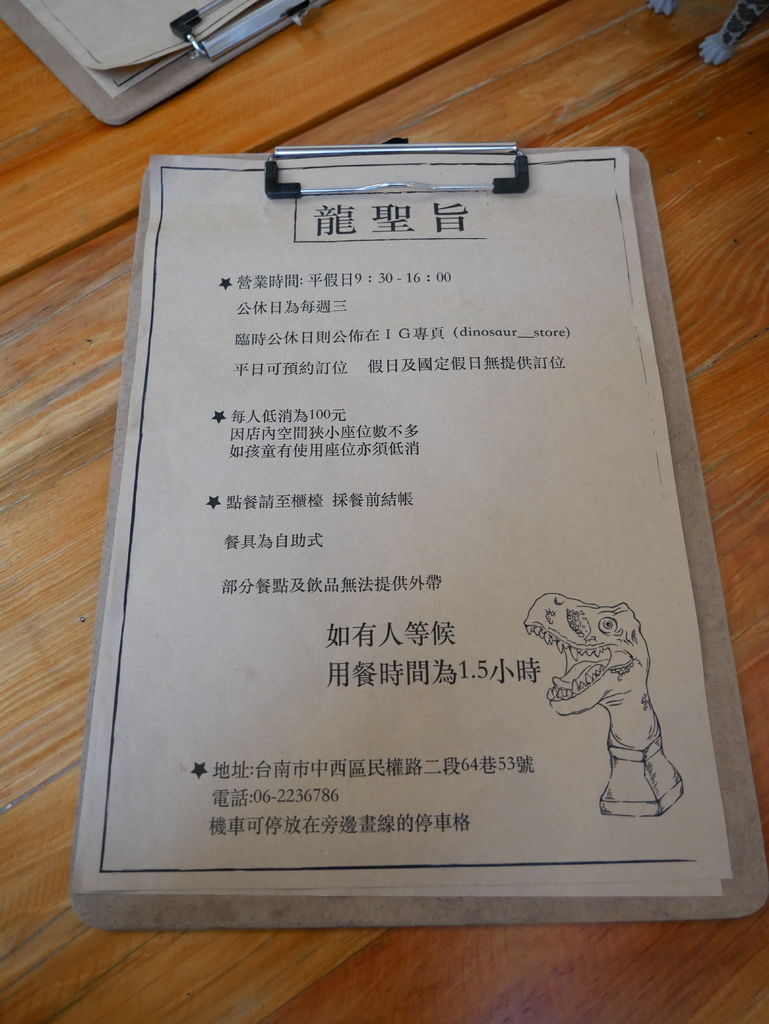 龍聖旨
★營業時間: 平假日9：30-16：00
公休日為每週三
臨時公休日則公佈在ＩＧ專頁（dinosaur__store)
平日可預約訂位　假日及國定假日無提供訂位
★每人低消為100元
因店內空間狹小座位數不多
如孩童有使用座位亦須低消
★點餐請至櫃檯 採餐前結帳
餐具為自助式
部分餐點及飲品無法提供外帶
如有人等候
用餐時間為1.5小時
★地址:台南市中西區民權路二段64巷53號
電話:06-2236786
機車可停放在旁邊畫線的停車格